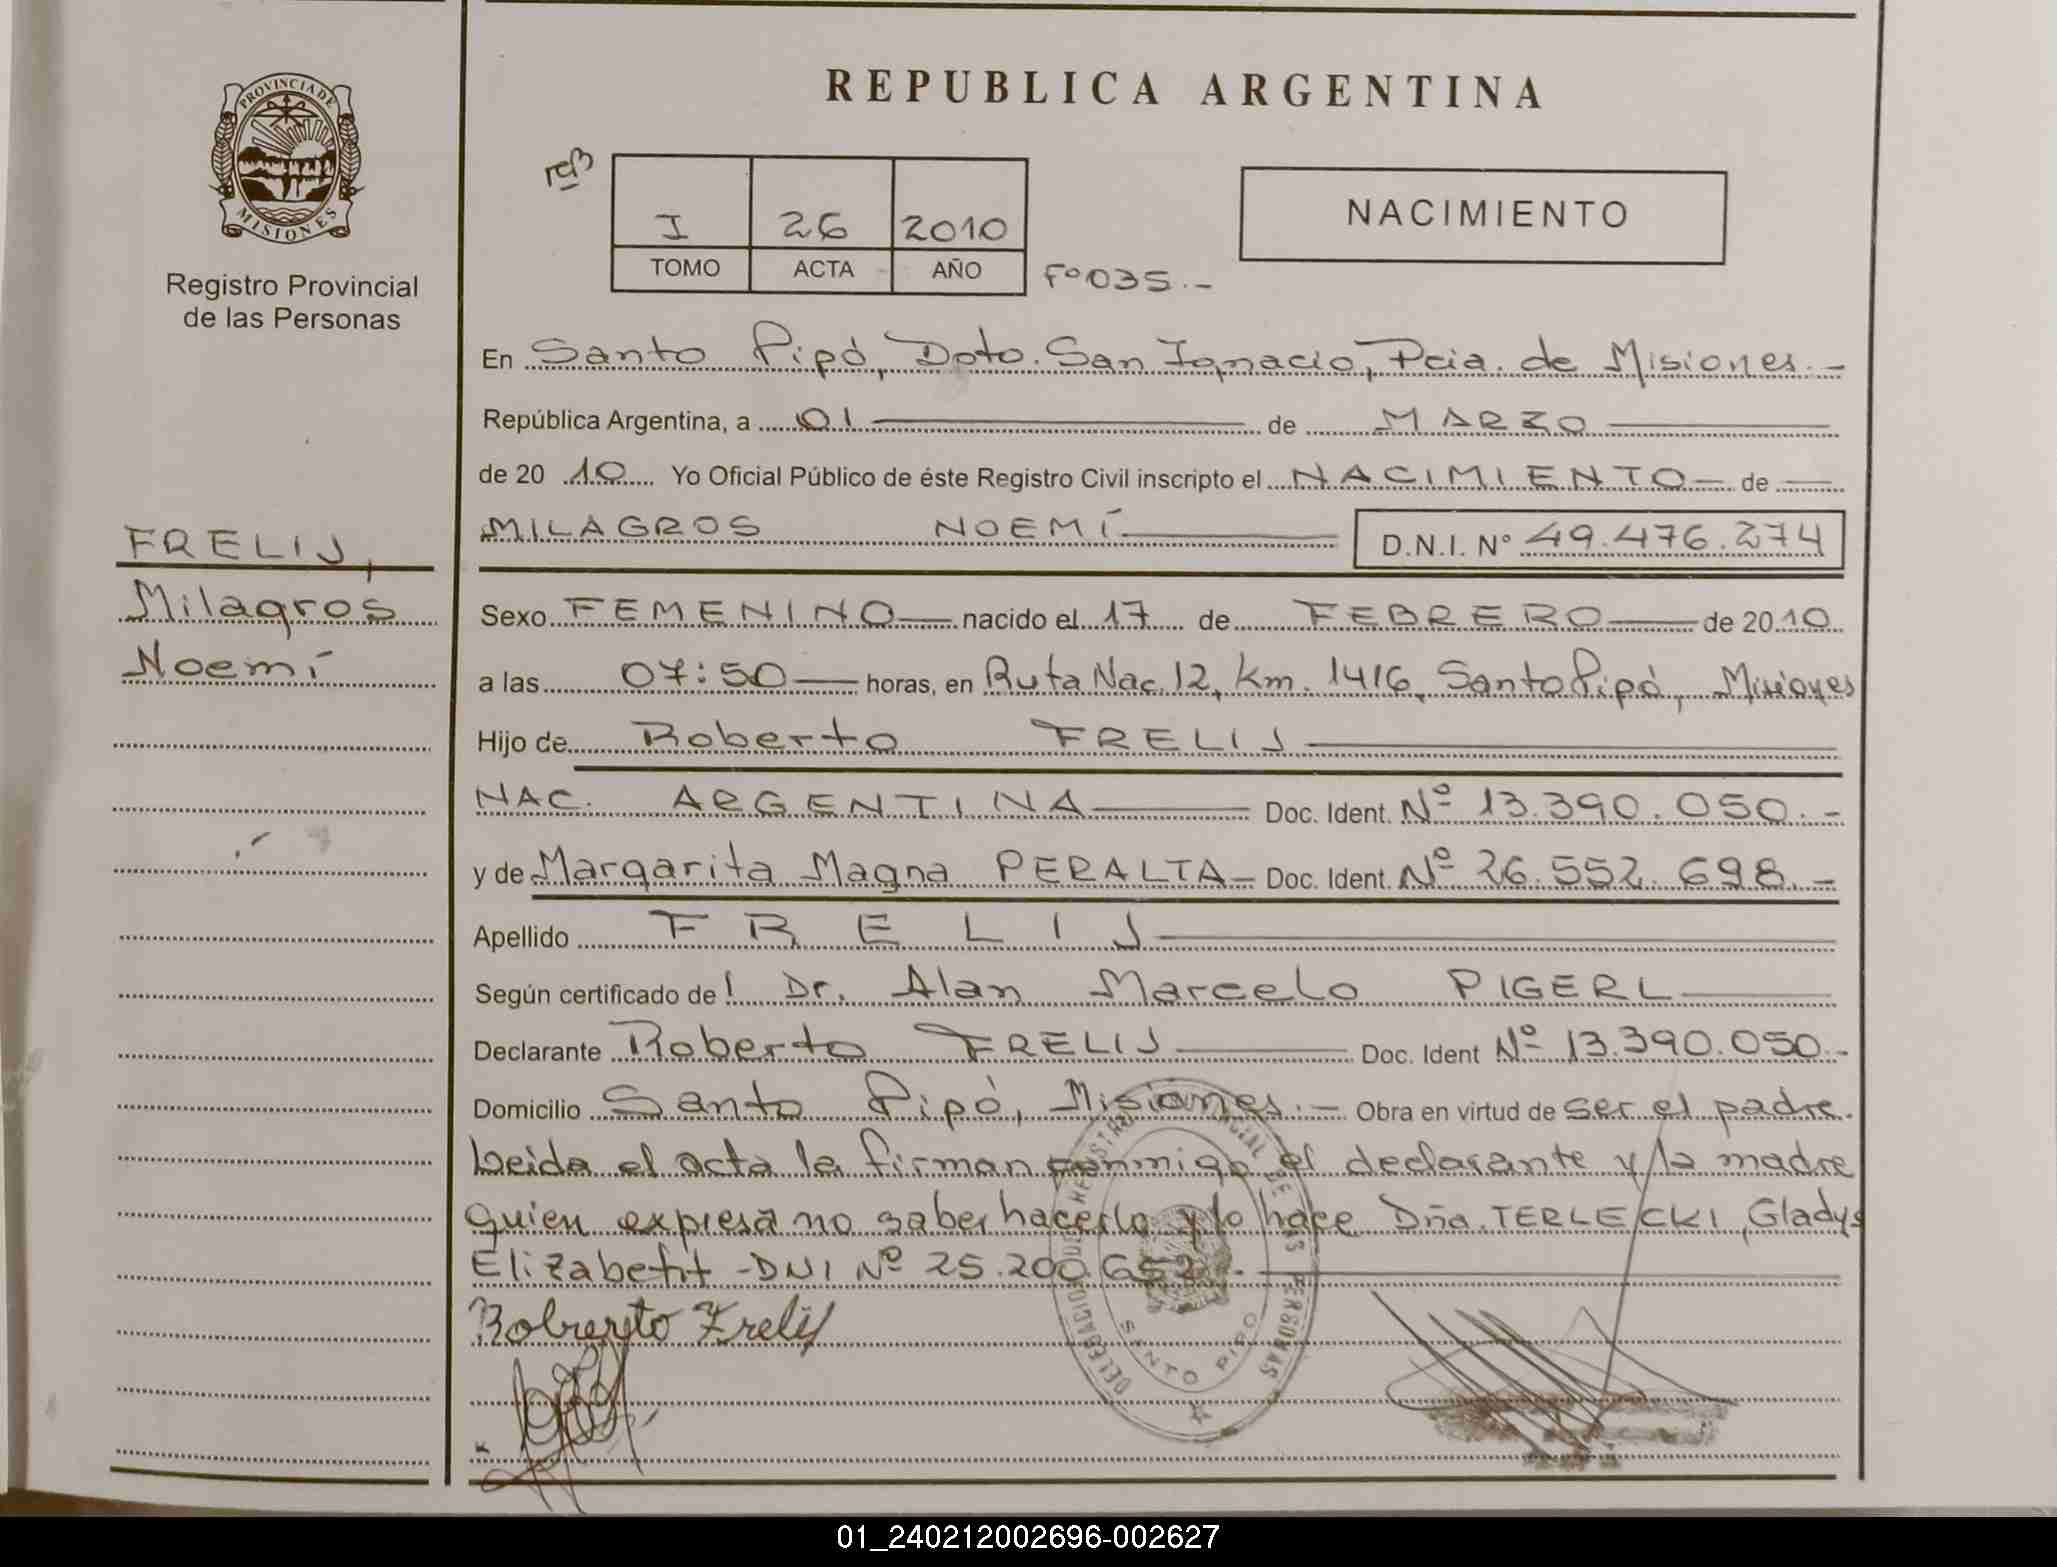 REPUBLICA ARGENTINA
PROVINCIA DE
MISIONES
Registro Provincial
de las Personas
I 26 2010
TOMO ACTA AÑO
Fº 035.-
NACIMIENTO
En Santo Pipó, Dpto. San Ignacio, Pcia. de Misiones.-
República Argentina, a 01 de MARZO
de 20 10 Yo Oficial Público de éste Registro Civil inscripto el NACIMIENTO de
MILAGROS NOEMÍ D.N.I. Nº 49.476.274
FRELIJ,
Milagros
Noemí
Sexo FEMENINO nacido el 17 de FEBRERO de 2010
a las 07:50 horas, en Ruta Nac. 12, Km. 1416, Santo Pipó, Misiones
Hijo de Roberto FRELIJ
NAC. ARGENTINA Doc. Ident. Nº 13.390.050.-
y de Margarita Magna PERALTA Doc. Ident. Nº 26.552.698.-
Apellido FRELIJ
Según certificado del Dr. Alan Marcelo PIGERL
Declarante Roberto FRELIJ Doc. Ident Nº 13.390.050.-
Domicilio Santo Pipó, Misiones.- Obra en virtud de ser el padre.
Leida el acta la firman conmigo el declarante y la madre
quien expresa no saber hacerlo y lo hace Dña. TERLECKI, Gladys
Elizabeht -DNI Nº 25.200.652.-
Roberto Frelij
SANTO PIPO
01_240212002696-002627